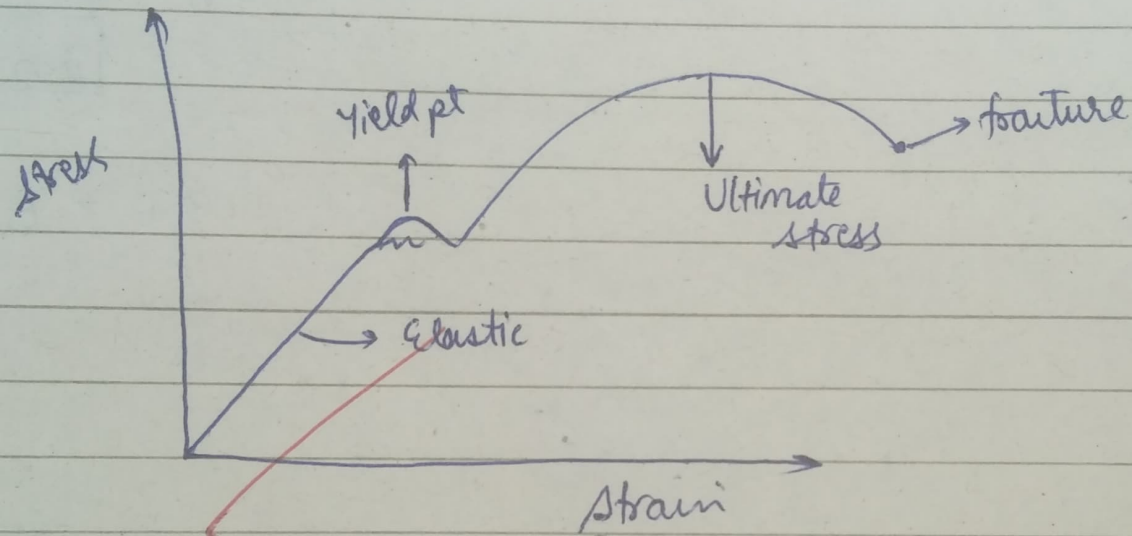 stress
Yield pt
fraiture
Ultimate
stress
Elastic
Strain